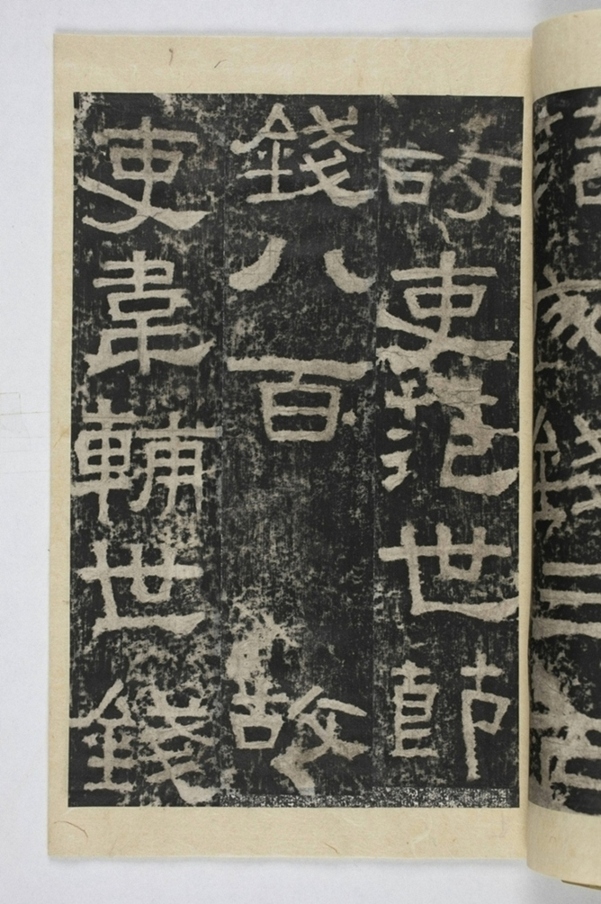 故吏范世節
錢八百　故
吏韋輔世錢